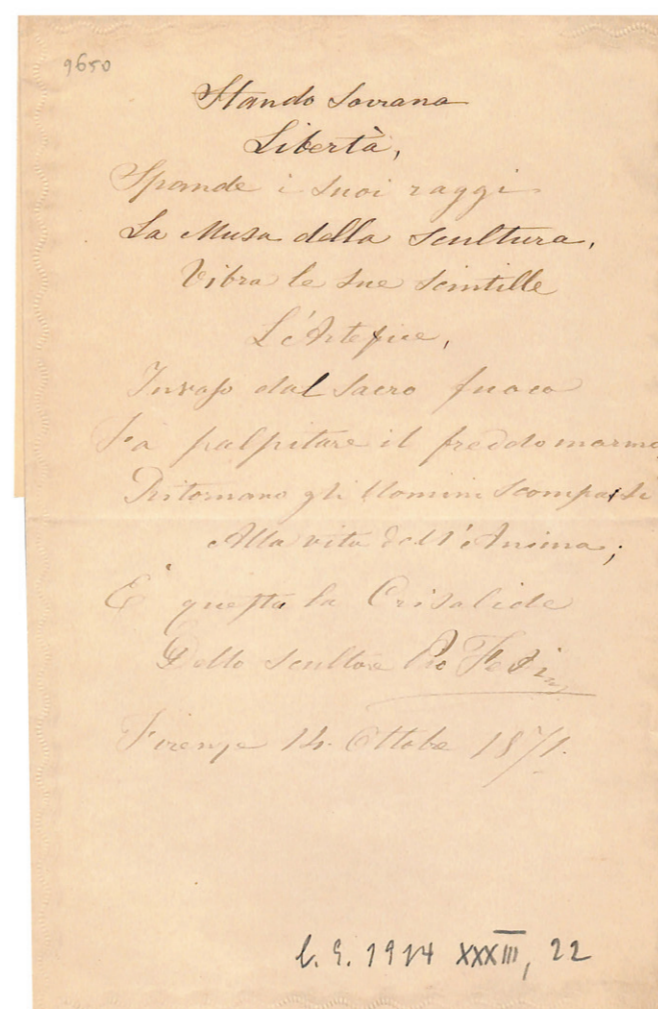 9650
Stando Sovrana
Libertà,
Spande i Suoi raggi
La Musa della Scultura,
Vibra le Sue Scintille
L'Artefice,
Invaso dal Sacro fuoco
Fa palpitare il freddo marmo,
Ritornano gli Uomini Scomparsi
Alla vita dell'Anima;
E' questa la Crisalide
Dello Scultore Pio Fedi
Firenze 14. Ottobe 1871.
l. g. 1914 XXXIII, 22